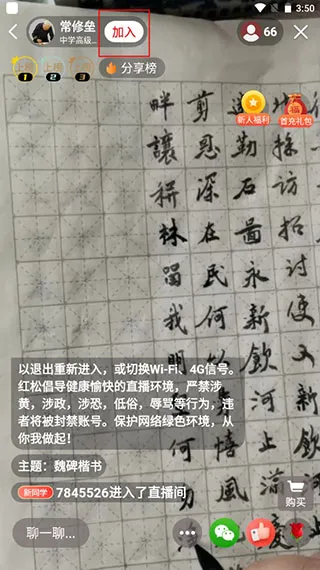 3:50
常修垒
中学高级...
加入
66
上榜 1
上榜 2
上榜 3
分享榜
新人福利
首充礼包
採訪招討
勤石
永新飲河止
剪恩深在民何
畔讓
我明
以退出重新进入，或切换Wi-Fi、4G信号。
红松倡导健康愉快的直播环境，严禁涉
黄，涉政，涉恐，低俗，辱骂等行为，违
者将被封禁账号。保护网络绿色环境，从
你我做起！
主题：魏碑楷书
新同学 7845526进入了直播间
购买
聊一聊...